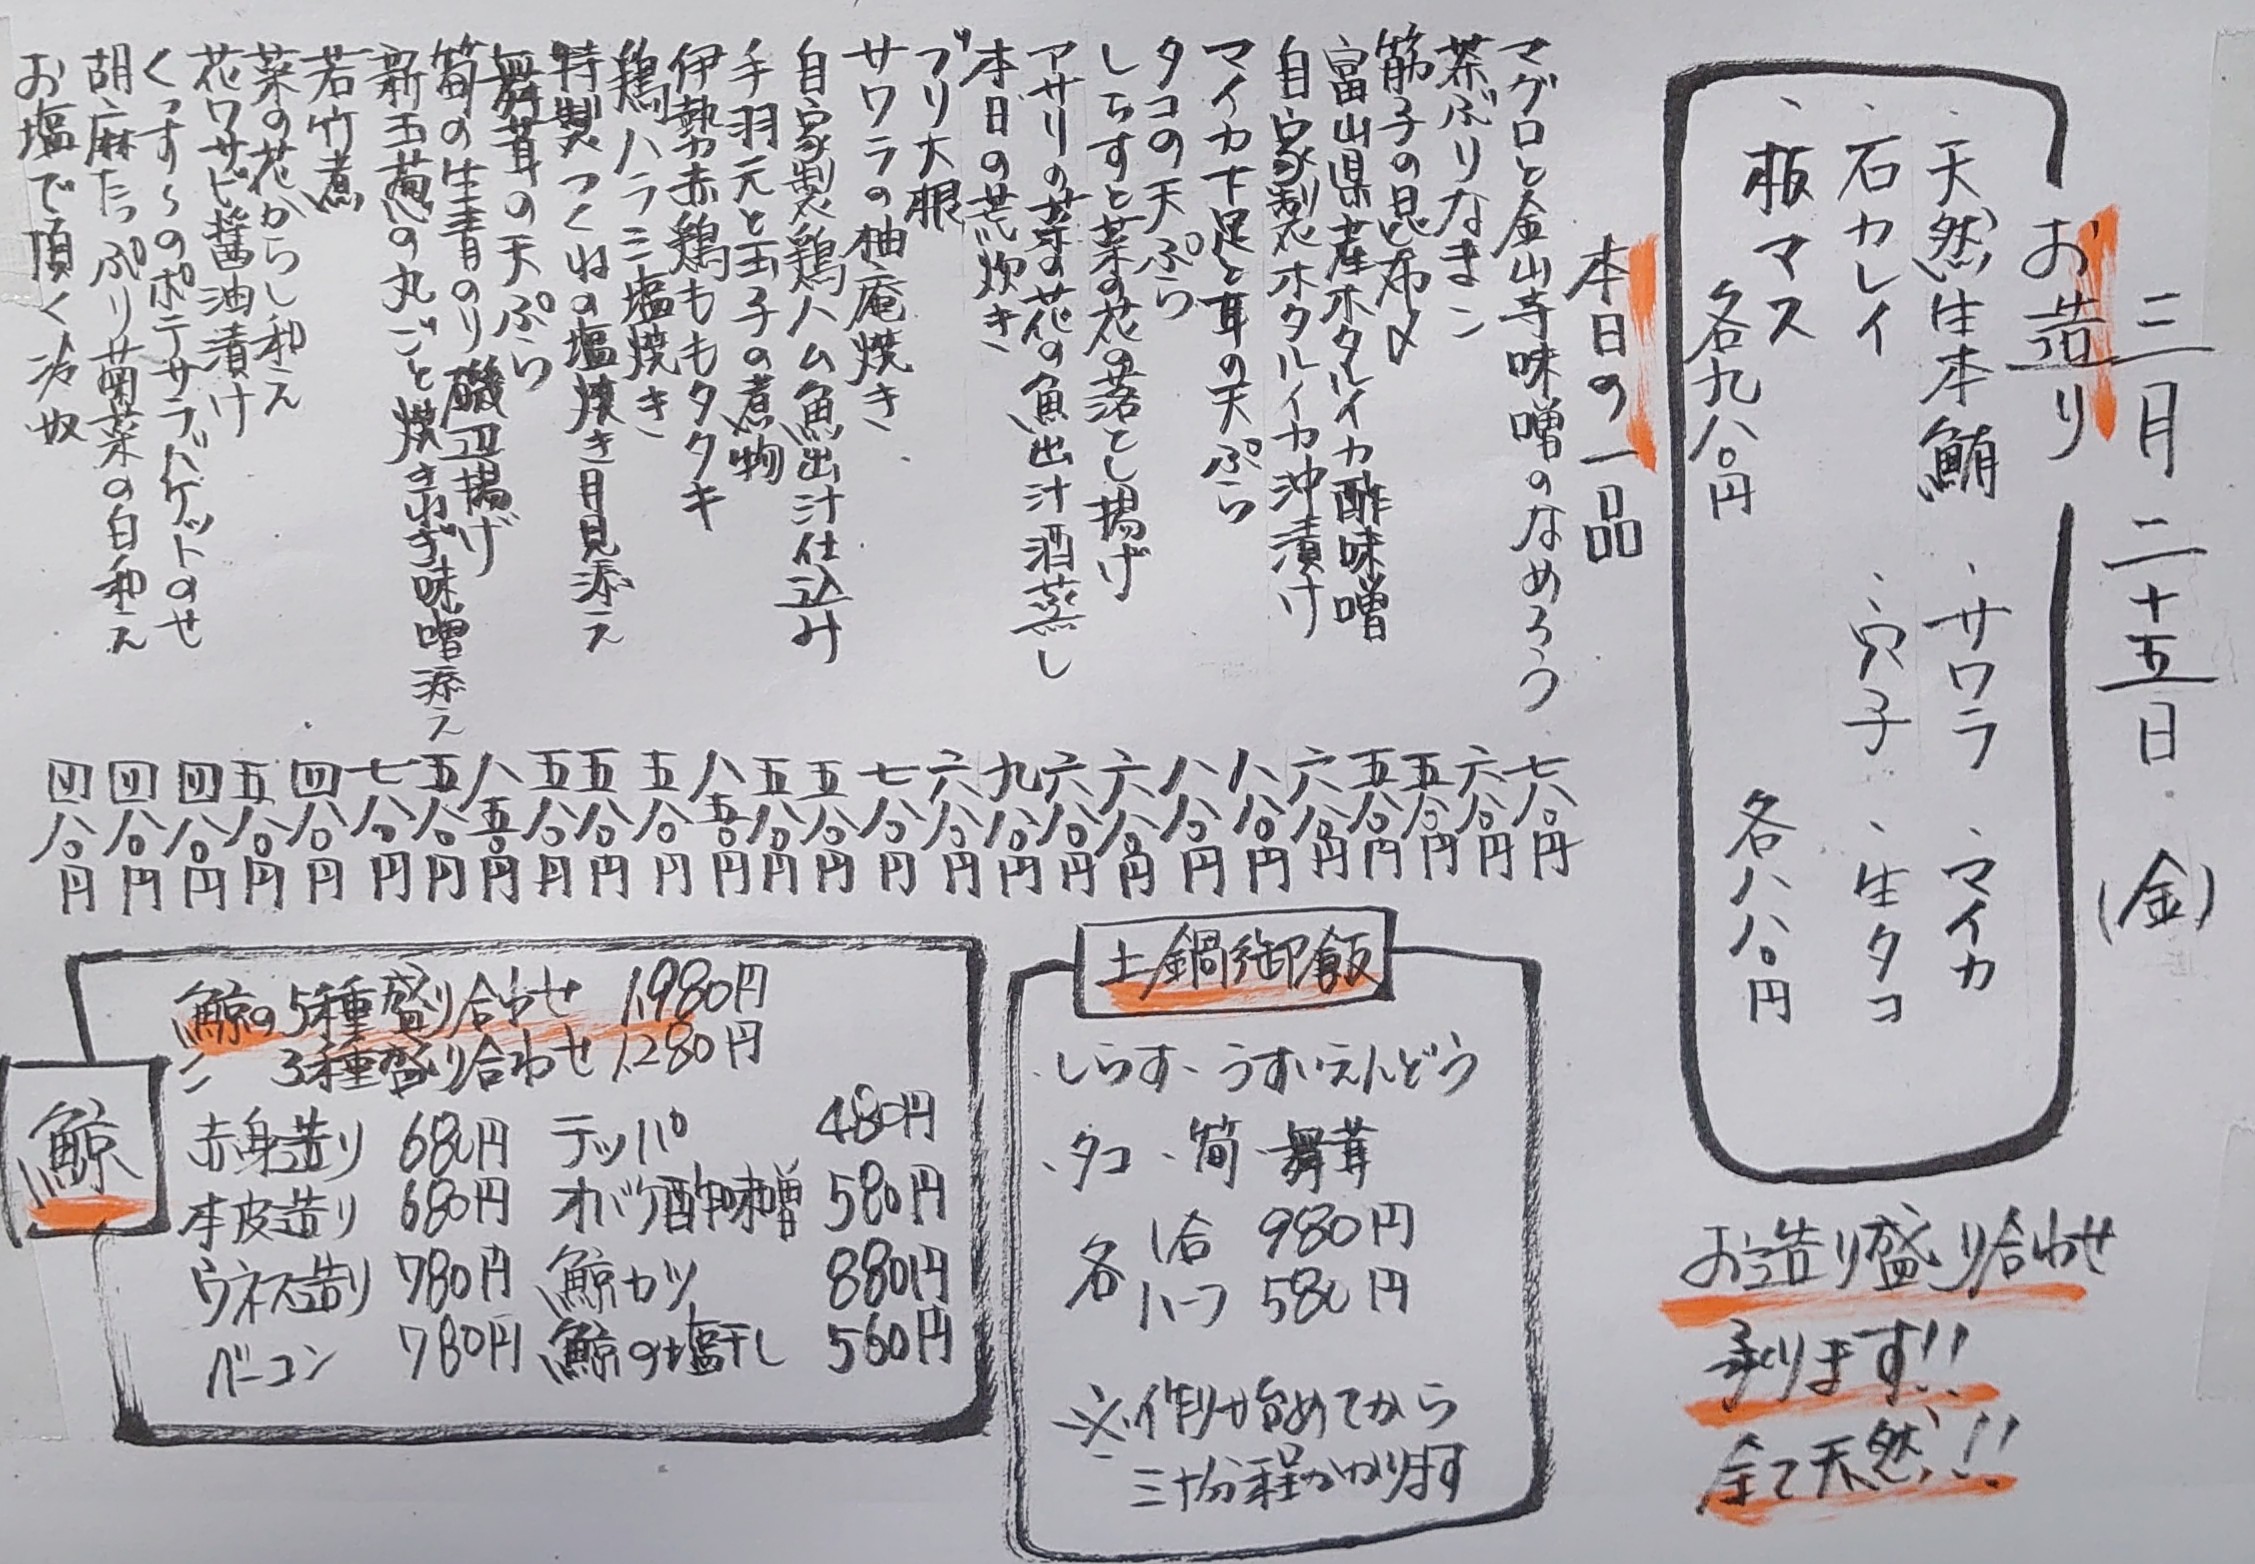 三月二十五日(金)
お造り
・天然生本鮪 ・サワラ ・マイカ
・石カレイ ・穴子 ・生タコ
・板マス
各九八〇円 各八八〇円
お造り盛り合わせ
承ります!!
全て天然!!
本日の一品
マグロと金山寺味噌のなめろう 七八〇円
茶ぶりなまこ 六八〇円
筋子の昆布〆 五八〇円
富山県産ホタルイカ酢味噌 五八〇円
自家製ホタルイカ沖漬け 六八〇円
マイカ下足と耳の天ぷら 八八〇円
タコの天ぷら 八八〇円
しらすと菜の花の落とし揚げ 六八〇円
アサリの菜の花の魚出汁酒蒸し 六八〇円
本日の荒炊き 九八〇円
ブリ大根 六八〇円
サワラの柚庵焼き 七八〇円
自家製鶏ハム魚出汁仕込み 五八〇円
手羽元と玉子の煮物 五八〇円
伊勢赤鶏ももタタキ 八五〇円
鶏ハラミ塩焼き 五八〇円
特製つくねの塩焼き月見添え 五八〇円
舞茸の天ぷら 五八〇円
筍の生青のり磯辺揚げ 八五〇円
新玉葱の丸ごと焼きねぎ味噌添え 五八〇円
若竹煮 七八〇円
菜の花からし和え 四八〇円
花ワサビ醤油漬け 五八〇円
くっすぅのポテサラバケットのせ 四八〇円
胡麻たっぷり菊菜の白和え 四八〇円
お塩で頂く冷奴 四八〇円
土鍋御飯
・しらす・うすいえんどう
・タコ・筍・舞茸
各 1合 980円
ハーフ 580円
※作り始めてから
三十分程かかります
鯨
鯨の5種盛り合わせ 1,980円
〃 3種盛り合わせ 1,280円
赤身造り 680円 テッパ 480円
本皮造り 680円 オバケ酢味噌 580円
ウネス造り 780円 鯨カツ 880円
ベーコン 780円 鯨の塩干し 560円